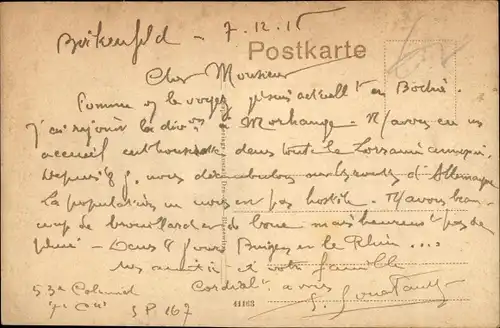 Birkenfeld - 7.12.18
Postkarte
Cher Monsieur
Comme vs le voyez je suis actuellt en Bochie.
J'ai rejoint la divon à Morhange. N/avons eu un
accueil enthousiaste dans toute la Lorraine
Depuis 8 j. nous déambulons sur les routes d'Allemagne
La population ne nous est pas hostile. N/avons beau-
coup de brouillard de boue mais heureust pas de
pluie - Dans 8 jours Bingen et le Rhin ....
Mes amitiés et votre famille
Cordialt à vous
53e Colonial
S P 167
41163